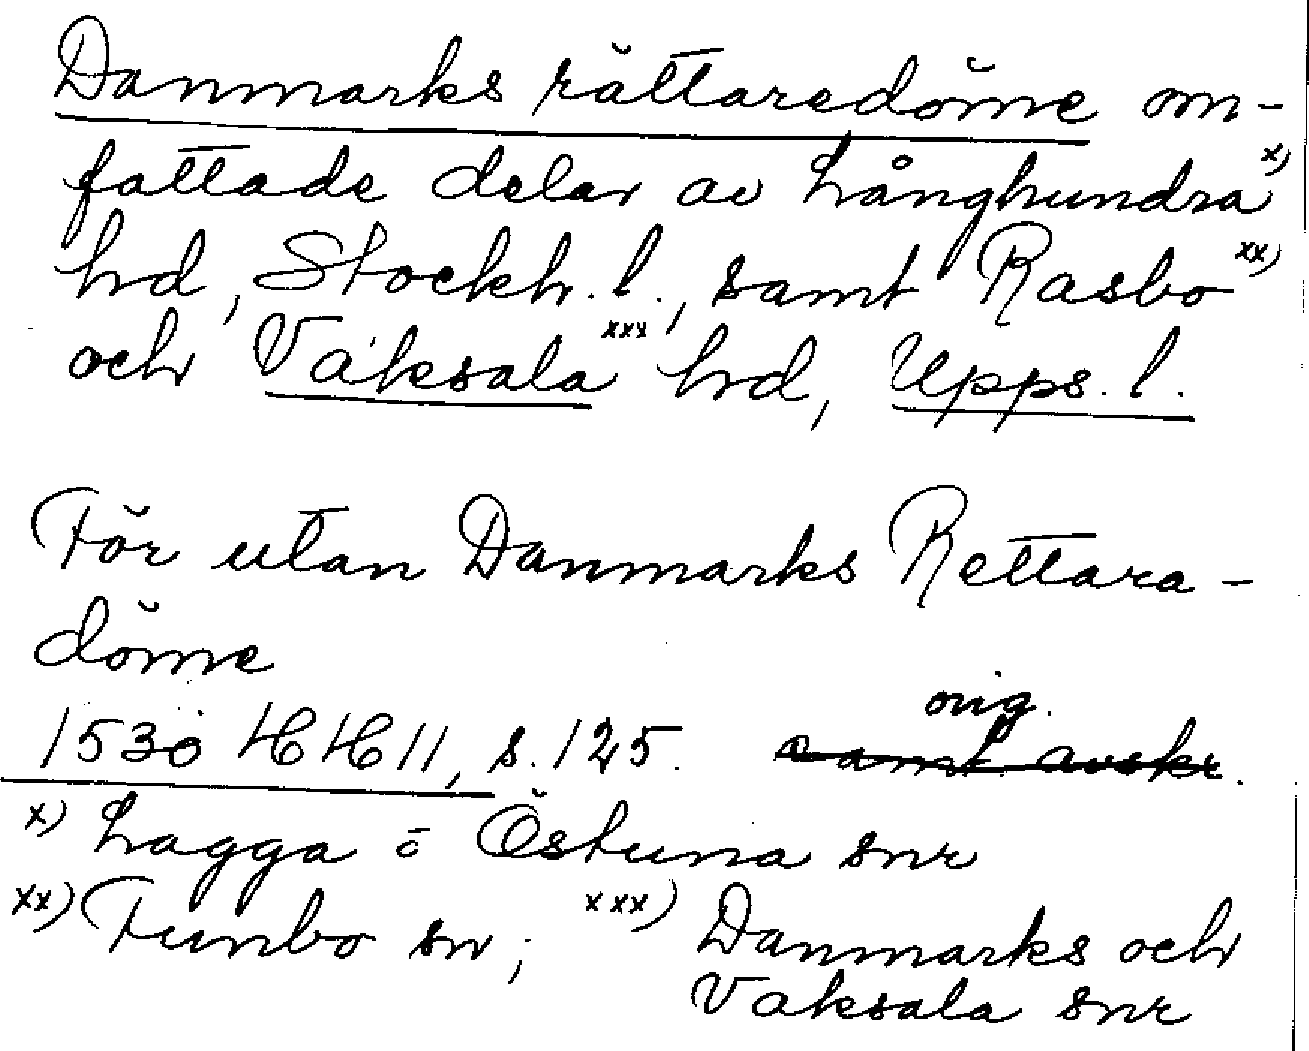 Danmarks rättaredöme om-
fattade delar av Långhundra x)
hrd, Stockh. l., samt Rasbo xx)
och Vaksala xxx hrd, Upps. l.
För utan Danmarks Rettara-
döme
orig.
1530 HH 11, s. 125. samt. avskr.
x) Lagga o Östuna snr
xx) Funbo sn; xxx) Danmarks och
Vaksala snr